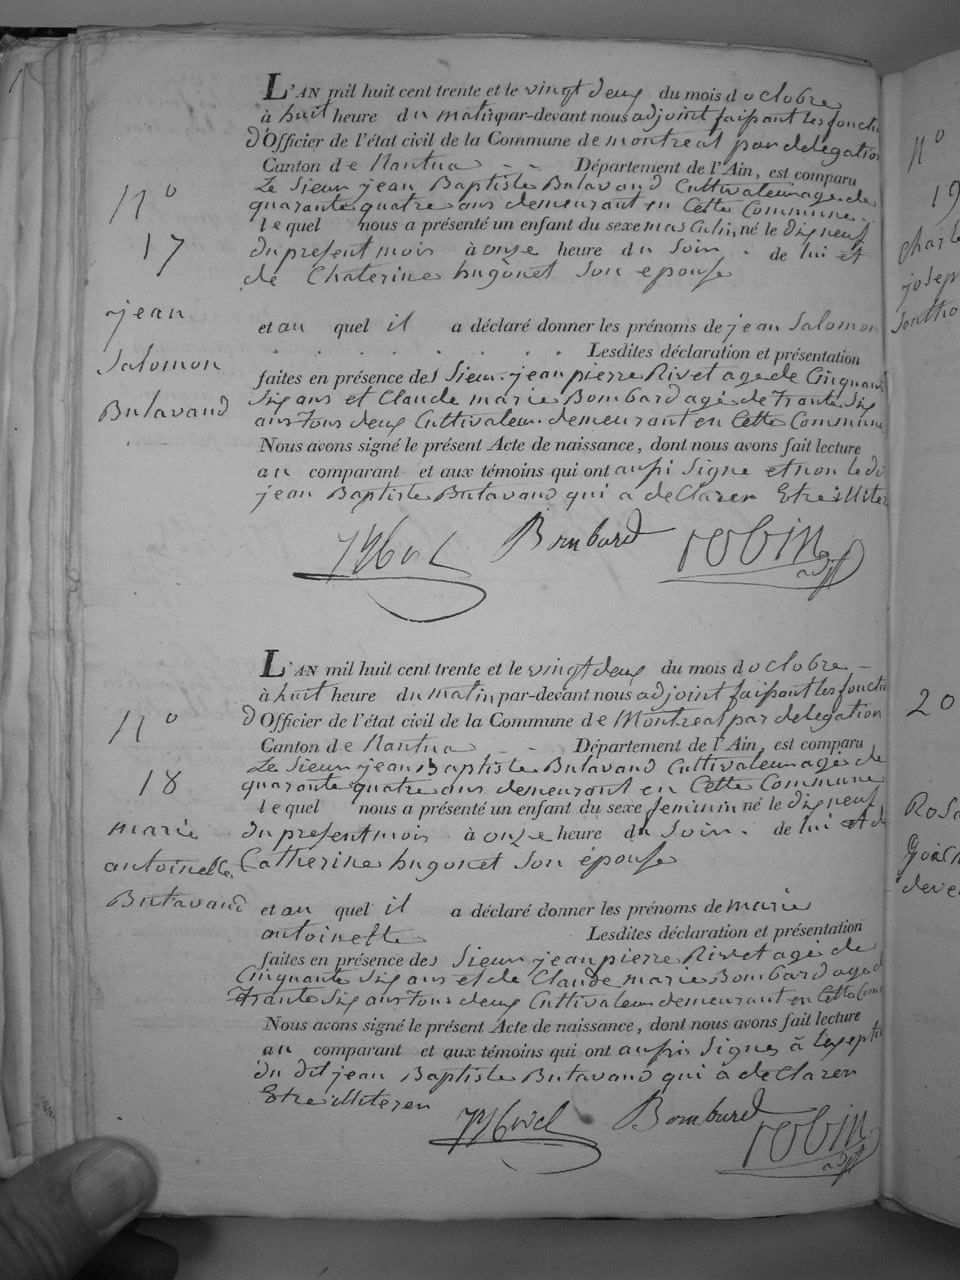 L'AN mil huit cent trente et le vingt deux du mois d octobre
à huit heure du matin par-devant nous adjoint faisant les foncti
d'Officier de l'état civil de la Commune de montreal par delegation
Canton de Nantua - - Département de l'Ain, est comparu
Le Sieur jean Baptiste Butavand Cultivateur age de
quarante quatre ans demeurant en Cette Commune.
lequel nous a présenté un enfant du sexe masculin, né le dix neuf
du present mois à onze heure du Soir. de lui et
de Chaterine hugonet Son epouse
N° 17
jean
Salomon
Butavand
et au quel il a déclaré donner les prénoms de jean Salomon
Lesdites déclaration et présentation
faites en présence des Sieur. jean pierre Rivet age de Cinquant
Six ans et Claude marie Bombard agé de Trante Six
ans Tous deux Cultivateur. demeurant en Cette Commune
Nous avons signé le présent Acte de naissance, dont nous avons fait lecture
au comparant et aux témoins qui ont aussi Signe et non le di
jean Baptiste Butavand qui a declarer Etre illiter
Bombard robin adjt
L'AN mil huit cent trente et le vingt deux du mois d octobre -
à huit heure du matin par-devant nous adjoint faisant les foncti
d'Officier de l'état civil de la Commune de Montreal par delegation
Canton de Nantua - - Département de l'Ain, est comparu
Le Sieur jean Baptiste Butavand Cultivateur agé de
quarante quatre ans demeurant en Cette Commune
lequel nous a présenté un enfant du sexe feminin né le dix neuf
du present mois à onze heure du Soir. de lui et de
Catherine hugonet Son épouse
N° 18
marie
antoinette
Butavand
et au quel il a déclaré donner les prénoms de marie
antoinette Lesdites déclaration et présentation
faites en présence des Sieur jean pierre Rivet agé de
Cinquante Six ans et de Claude marie Bombard aged
Trante Six ans Tous deux Cultivateur demeurant en Cette Com
Nous avons signé le présent Acte de naissance, dont nous avons fait lecture
au comparant et aux témoins qui ont aussi Signes à lexepti
du dit jean Baptiste Butavand qui à declarer
Etre illiteren
Bombard robin adjt
N°
19
Charle
josep
20
Rosa